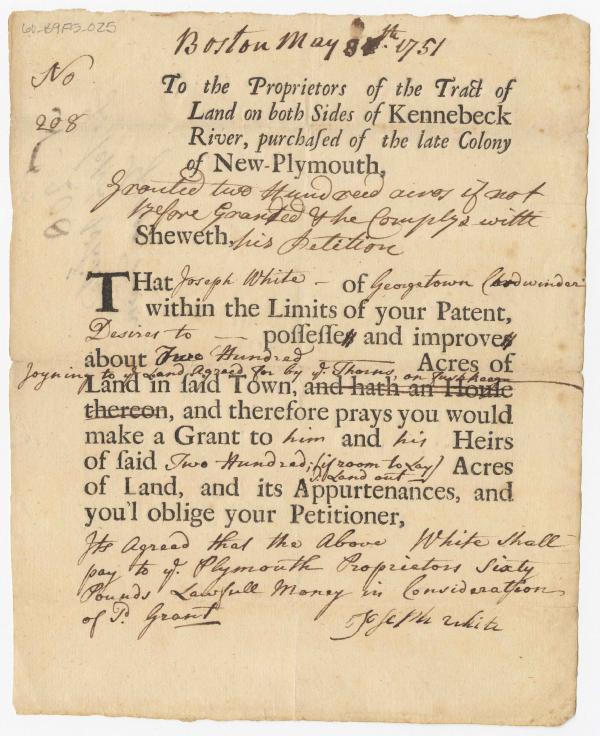 60-B9F5-025
Boston May 8th. 1751
No
208
To the Proprietors of the Tract of
Land on both Sides of Kennebeck
River, purchased of the late Colony
of New-Plymouth,
Granted two Hundreed acres if not
before Granted & he Complys with
Sheweth, his Petition
THat Joseph White - of Georgetown
within the Limits of your Patent,
Desires to - possesses and improves
about Two Hundred Acres of
Joyning to ye Land Agreed for by ye Thorns, on
Land in said Town, and hath an House
thereon, and therefore prays you would
make a Grant to him and his Heirs
of said Two Hundred; (if room to Lay Acres
Land out)
of Land, and its Appurtenances, and
you'l oblige your Petitioner,
Its Agreed that the Above White Shall
pay to ye. Plymouth Proprietors Sixty
Pounds Lawfull Money in Consideration
of Grant
Joseph White